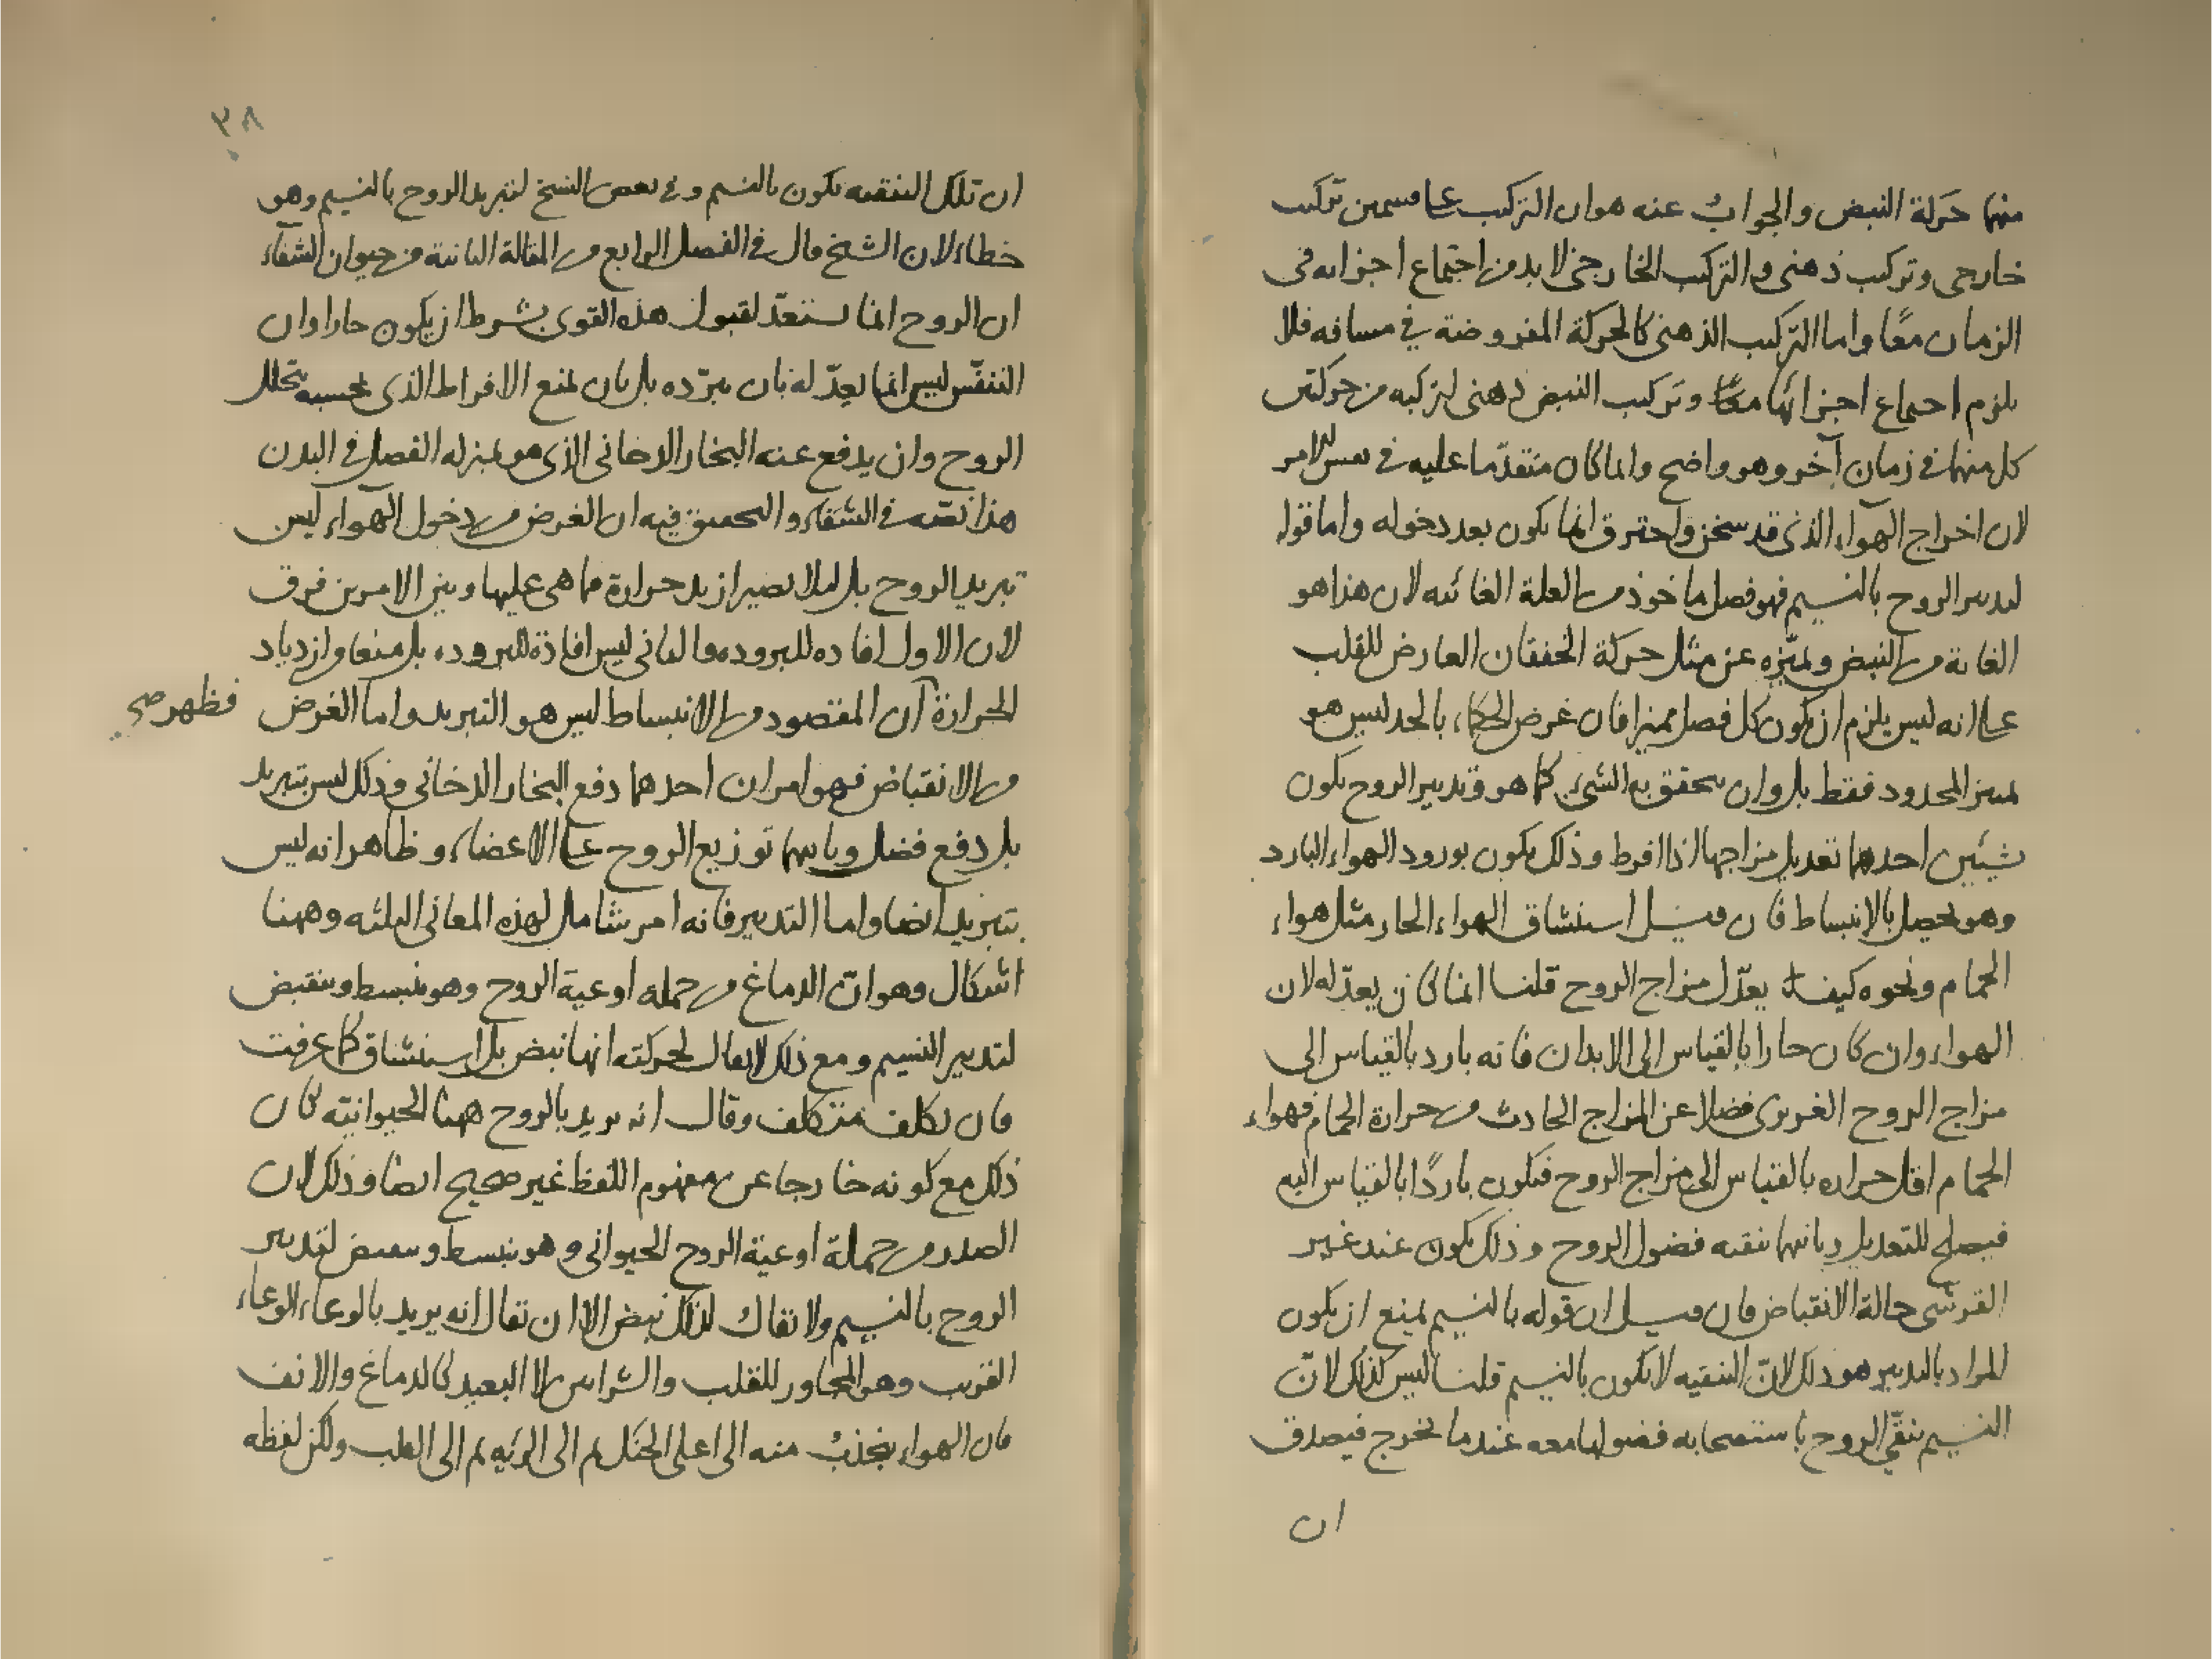 منها حركة النبض والجواب عنه هو ان التركيب على قسمين تركيب
خارجى وتركيب ذهنى والتركيب الخارجى لا بد من اجتماع اجزائه فى
الزمان معًا واما التركيب الذهنى كالحركة المفروضة فى مسافه فلا
يلزم اجتماع اجزائها معًا وتركيب النبض ذهنى لتركبه من حركتين
كل منهما فى زمان آخر وهو واضح وانما كان متقدّما عليه فى نفس الامر
لان اخراج الهواء الذى قد سخن واحترق انما يكون بعد دخوله واما قوله
لتدبير الروح بالنسيم فهو فصل ماخوذ من العلة الغائيه لان هذا هو
الغاية من النبض ويميّزه عن مثل حركة الخفقان العارض للقلب
على انه ليس يلزم ان يكون كل فصل مميزا فان غرض الحكماء بالحد ليس هو
تمييز المحدود فقط بل وان يتحقق به الشىء كما هو وتدبير الروح يكون
بشيئين احدهما تعديل مزاجها اذا افرط وذلك يكون بورود الهواء البارد
وهو يحصل بالانبساط فان قيل استنشاق الهواء الحار مثل هواء
الحمام ونحوه كيف يعدّل مزاج الروح قلنا انما كان يعدّله لان
الهواء وان كان حارا بالقياس الى الابدان فانه بارد بالقياس الى
مزاج الروح الغريزى فضلا عن المزاج الحادث من حرارة الحمام فهواء
الحمام اقل حراره بالقياس الى مزاج الروح فيكون باردًا بالقياس اليه
فيصلح للتعديل وثانيهما تنقيه فضول الروح وذلك يكون عند غير
القرشى حالة الانقباض فان قيل ان قوله بالنسيم يمنع ان يكون
المراد بالتدبير هو ذلك لانّ التنقيه لا تكون بالنسيم قلنا ليس كذلك لانّ
النسيم ينقّى الروح باستصحابه فضولها معه عندما يخرج فيصدق
ان
٣٨
ان تلك التنقيه تكون بالنسيم وفى بعض النسخ لتبريد الروح بالنسيم وهو
خطاء لان الشيخ قال فى الفصل الرابع من المقالة الثانية من حيوان الشفآء
ان الروح انما يستعدّ لقبول هذه القوى بشرط ان يكون حارا وان
التنفّس ليس انما يعدّله بان يبرّده بل بان يمنع الافراط الذى بحسبه يتحلل
الروح وان يدفع عنه البخار الدخانى الذى هو بمنزله الفضل فى البدن
هذا نصّه فى الشفاء والتحقيق فيه ان الغرض من دخول الهواء ليس
تبريد الروح بل لئلا يصير ازيد حرارة مما هى عليها وبين الامرين فرق
لان الاول افاده للبروده والثانى ليس افادة للبروده بل منعا وازدياد
الحرارة ان المقصود من الانبساط ليس هو التبريد واما الغرض
فظهر صح
من الانقباض فهو امران احدهما دفع البخار الدخانى وذلك ليس بتبريد
بل دفع فضل وثانيهما توزيع الروح على الاعضاء وظاهر انه ليس
بتبريد ايضا واما التدبير فانه امر شامل لهذه المعانى الثلثه وههنا
اشكال وهو انّ الدماغ من جمله اوعية الروح وهو منبسط ومنقبض
لتدبير النسيم ومع ذلك لا يقال لحركته انها نبض بل استنشاق كما عرفت
فان تكلف متكلف وقال انه يريد بالروح ههنا الحيوانيّه كان
ذلك مع كونه خارجا عن مفهوم اللفظ غير صحيح ايضا وذلك لان
الصدر من جملة اوعية الروح الحيوانى وهو ينبسط وينقبض لتدبير
الروح بالنسيم ولا يقال لذلك نبض الا ان يقال انه يريد بالوعاء الوعاء
القريب وهو المجاور للقلب والشرايين لا البعيد كالدماغ والانف
فان الهواء ينجذب منه الى اعلى الحنك ثم الى الرئيه ثم الى القلب ولكن لفظه